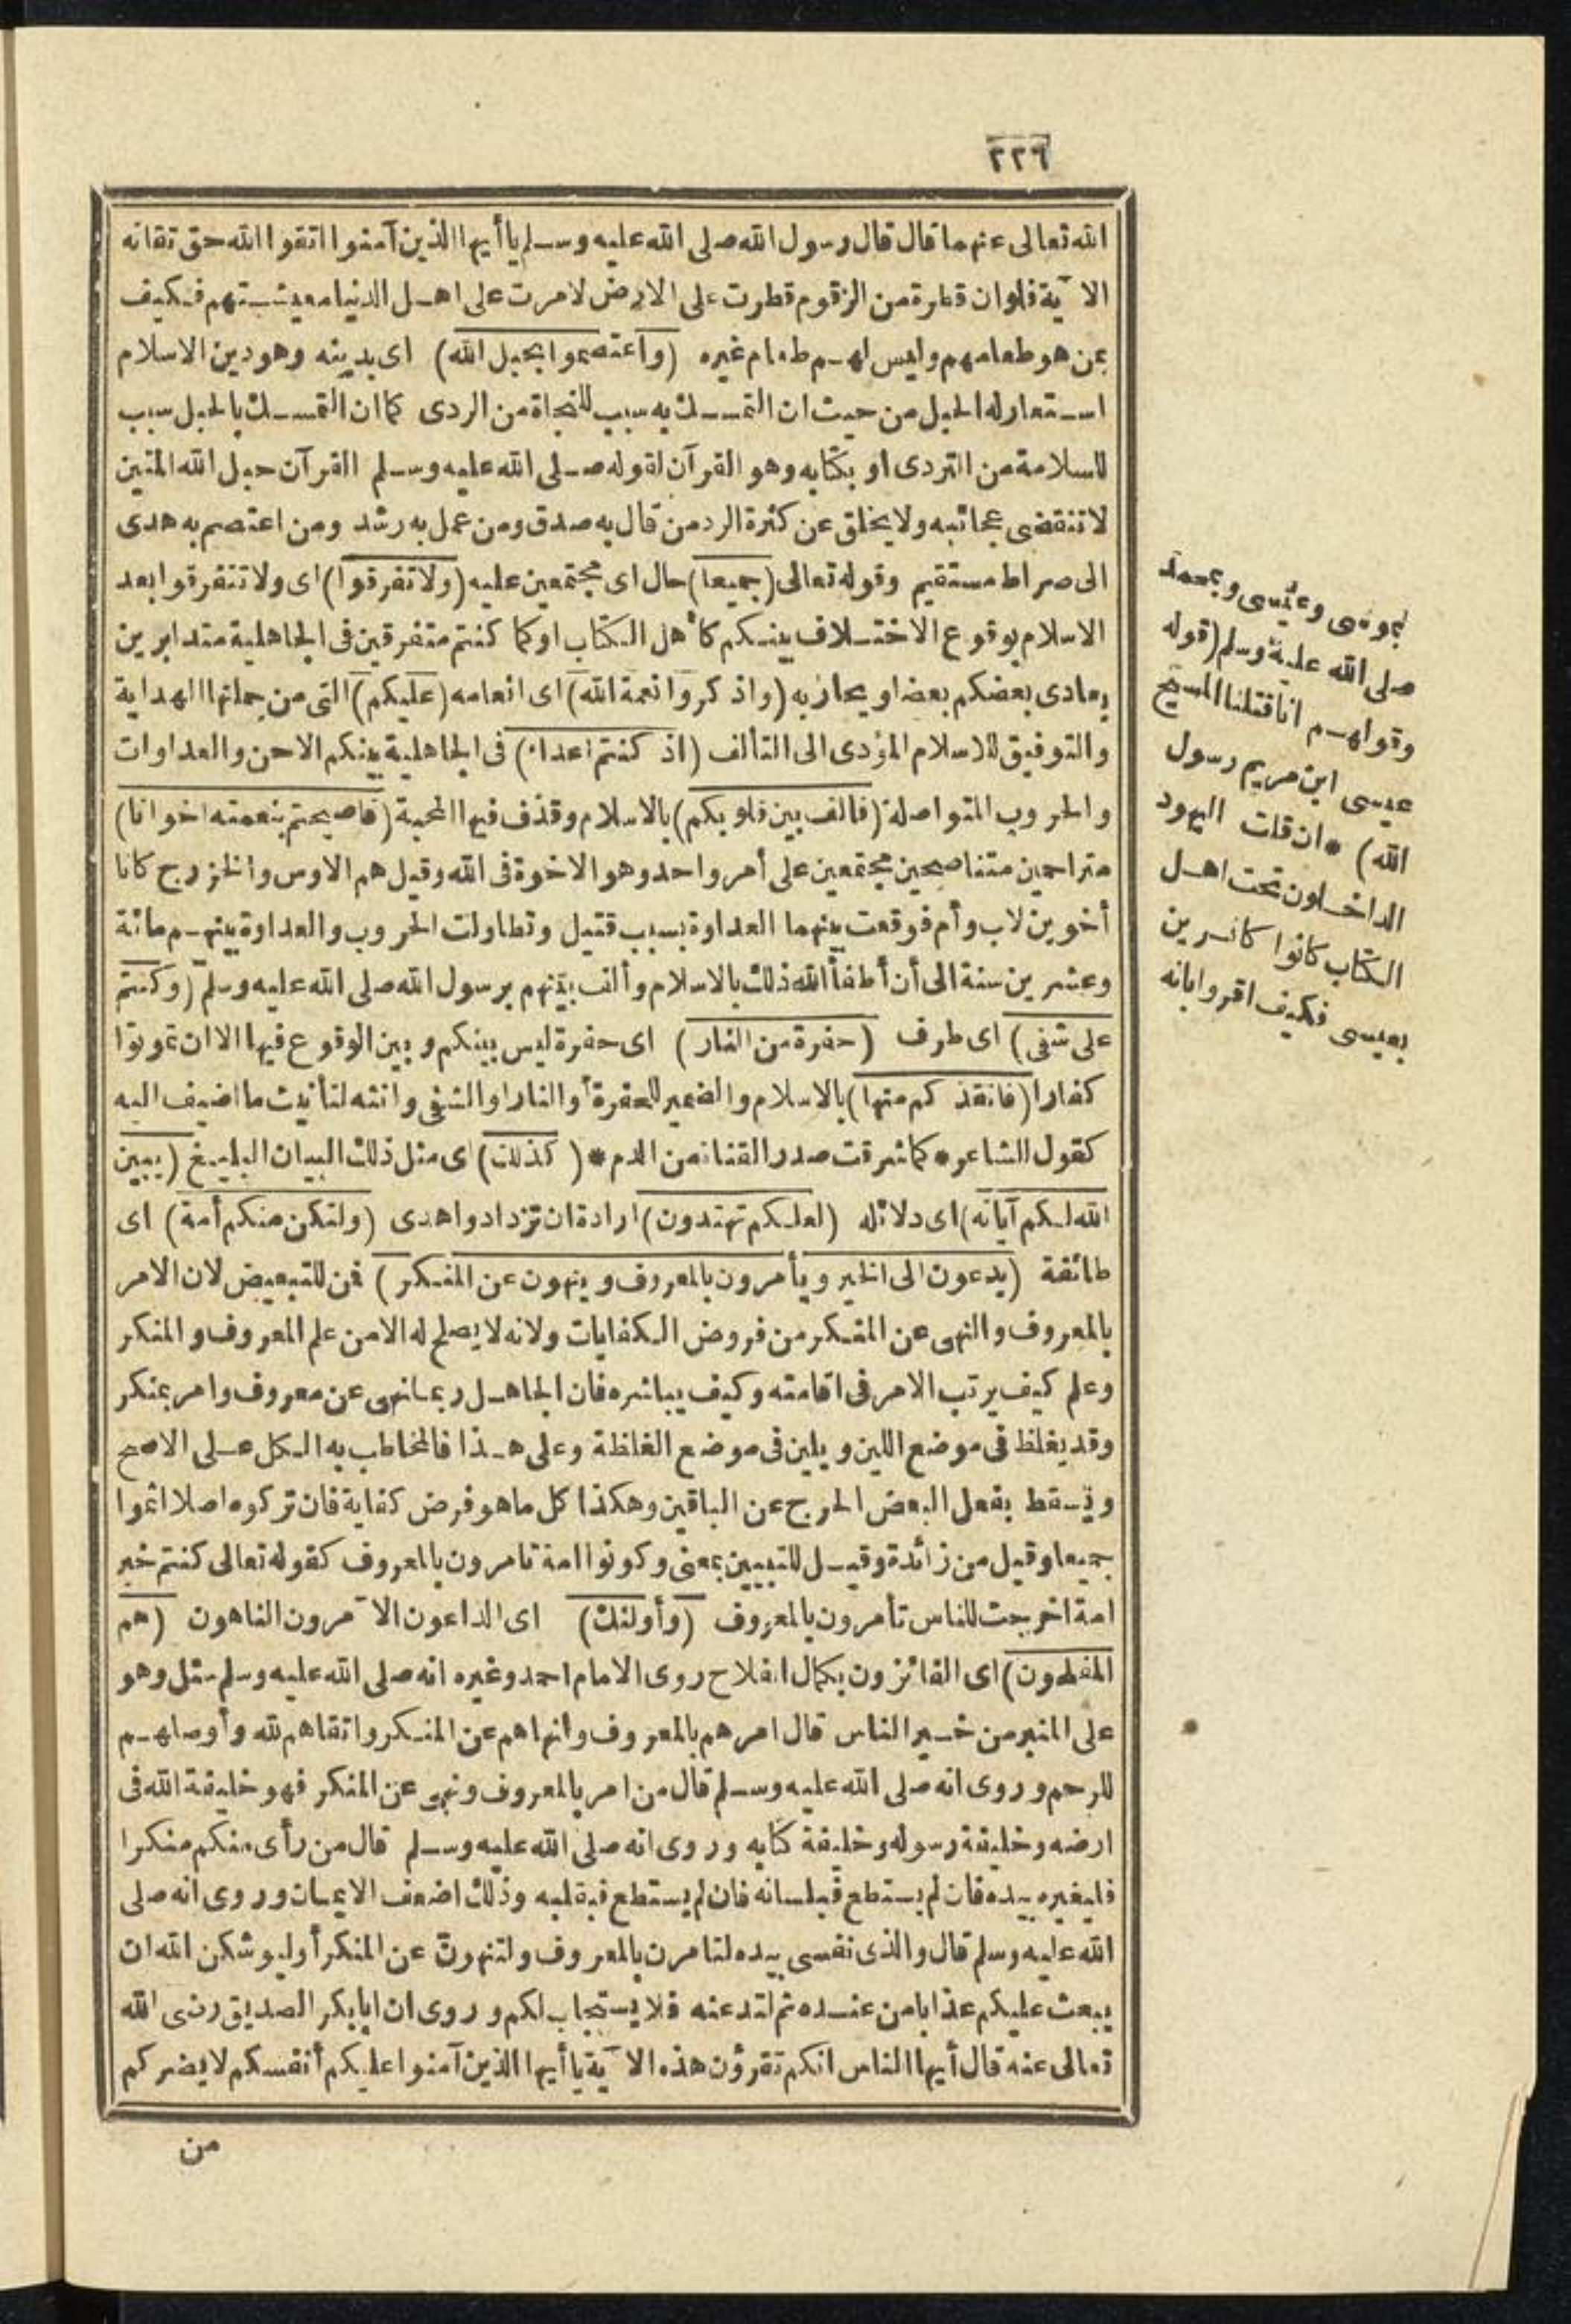 ٢٢٦
الله تعالى عنهما قال قال رسول الله صلى الله عليه وسلم يا أيها الذين آمنوا اتقوا الله حق تقاته
الآية فلو ان قطرة من الزقوم قطرت على الارض لامرت على اهل الدنيا معيشتهم فكيف
بمن هو طعامهم وليس لهم طعام غيره (واعتصموا بحبل الله) اى بدينه وهو دين الاسلام
استعار له الحبل من حيث ان التمسك به سبب للنجاة من الردى كما ان التمسك بالحبل سبب
للسلامة من التردى او بكتابه وهو القرآن لقوله صلى الله عليه وسلم القرآن حبل الله المتين
لا تنقضى عجائبه ولا يخلق عن كثرة الرد من قال به صدق ومن عمل به رشد ومن اعتصم به هدى
الى صراط مستقيم وقوله تعالى (جميعا) حال اى مجتمعين عليه (ولا تفرقوا) اى ولا تتفرقوا بعد
الاسلام بوقوع الاختلاف بينكم كأهل الكتاب او كما كنتم متفرقين فى الجاهلية متدابرين
يعادى بعضكم بعضا ويحاربه (واذكروا نعمة الله) اى انعامه (عليكم) التى من جملتها الهداية
والتوفيق للاسلام المؤدى الى التألف (اذ كنتم اعداء) فى الجاهلية بينكم الاحن والعداوات
والحروب المتواصلة (فالف بين قلوبكم) بالاسلام وقذف فيها المحبة (فاصبحتم بنعمته اخوانا)
متراحمين متناصحين مجتمعين على أمر واحد وهو الاخوة فى الله وقيل هم الاوس والخزرج كانا
أخوين لاب وأم فوقعت بينهما العداوة بسبب قتيل وتطاولت الحروب والعداوة بينهم مائة
وعشرين سنة الى أن أطفأ الله ذلك بالاسلام وألف بينهم برسول الله صلى الله عليه وسلم (وكنتم
على شفى) اى طرف (حفرة من النار) اى حفرة ليس بينكم وبين الوقوع فيها الا ان تموتوا
كفارا (فانقذكم منها) بالاسلام والضمير للحفرة أو النار او الشفى وانثه لتأنيث ما اضيف اليه
كقول الشاعر * كما شرقت صدر القناة من الدم * (كذلك) اى مثل ذلك البيان البليغ (يبين
الله لكم آياته) اى دلائله (لعلكم تهتدون) ارادة ان تزدادوا هدى (ولتكن منكم أمة) اى
طائفة (يدعون الى الخير ويأمرون بالمعروف وينهون عن المنكر) فمن للتبعيض لان الامر
بالمعروف والنهى عن المنكر من فروض الكفايات ولانه لا يصلح له الا من علم المعروف والمنكر
وعلم كيف يرتب الامر فى اقامته وكيف يباشره فان الجاهل ربما نهى عن معروف وامر بمنكر
وقد يغلظ فى موضع اللين ويلين فى موضع الغلظة وعلى هذا فالمخاطب به الكل على الاصح
ويسقط بفعل البعض الحرج عن الباقين وهكذا كل ما هو فرض كفاية فان تركوه اصلا اثموا
جميعا وقيل من زائدة وقيل للتبيين بمعنى وكونوا امة تامرون بالمعروف كقوله تعالى كنتم خير
امة اخرجت للناس تأمرون بالمعروف (وأولئك) اى الداعون الآمرون الناهون (هم
المفلحون) اى الفائزون بكمال الفلاح روى الامام احمد وغيره انه صلى الله عليه وسلم سئل وهو
على المنبر من خير الناس قال امرهم بالمعروف وانهاهم عن المنكر واتقاهم لله وأوصلهم
للرحم وروى انه صلى الله عليه وسلم قال من امر بالمعروف ونهى عن المنكر فهو خليفة الله فى
ارضه وخليفة رسوله وخليفة كتابه وروى انه صلى الله عليه وسلم قال من رأى منكم منكرا
فليغيره بيده فان لم يستطع فبلسانه فان لم يستطع فبقلبه وذلك اضعف الايمان وروى انه صلى
الله عليه وسلم قال والذى نفسى بيده لتامرن بالمعروف ولتنهون عن المنكر أو ليوشكن الله ان
يبعث عليكم عذابا من عنده ثم لتدعنه فلا يستجاب لكم وروى ان ابا بكر الصديق رضى الله
تعالى عنه قال أيها الناس انكم تقرؤن هذه الآية يا أيها الذين آمنوا عليكم أنفسكم لا يضركم
من
بموسى وعيسى وبمحمد
صلى الله عليه وسلم (قوله
وقولهم انا قتلنا المسيح
عيسى ابن مريم رسول
الله) * ان قلت اليهود
الداخلون تحت اهل
الكتاب كانوا كافرين
بعيسى فكيف اقروا بانه